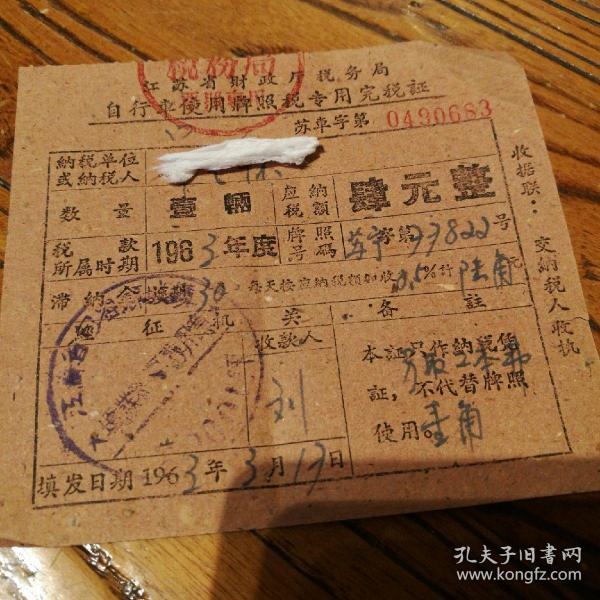 税务局
江苏省财政厅税务局
自行车使用牌照税专用完税証
苏車字第 0490683
納税单位
或納税人
数量 壹輛 应納税额 肆元整
税款所属时期 1963年度 牌照号码 苏宁字第33822号
滞納金 逾期30 每天按应納税额加收0.5%計 陆角 元
征 机 关 备註
收款人
刘
本証只作納税凭
証，不代替牌照
使用。
另收工本费
壹角
填发日期 1963年3月19日
收据联：交納税人收执
孔夫子旧書网
www.kongfz.com